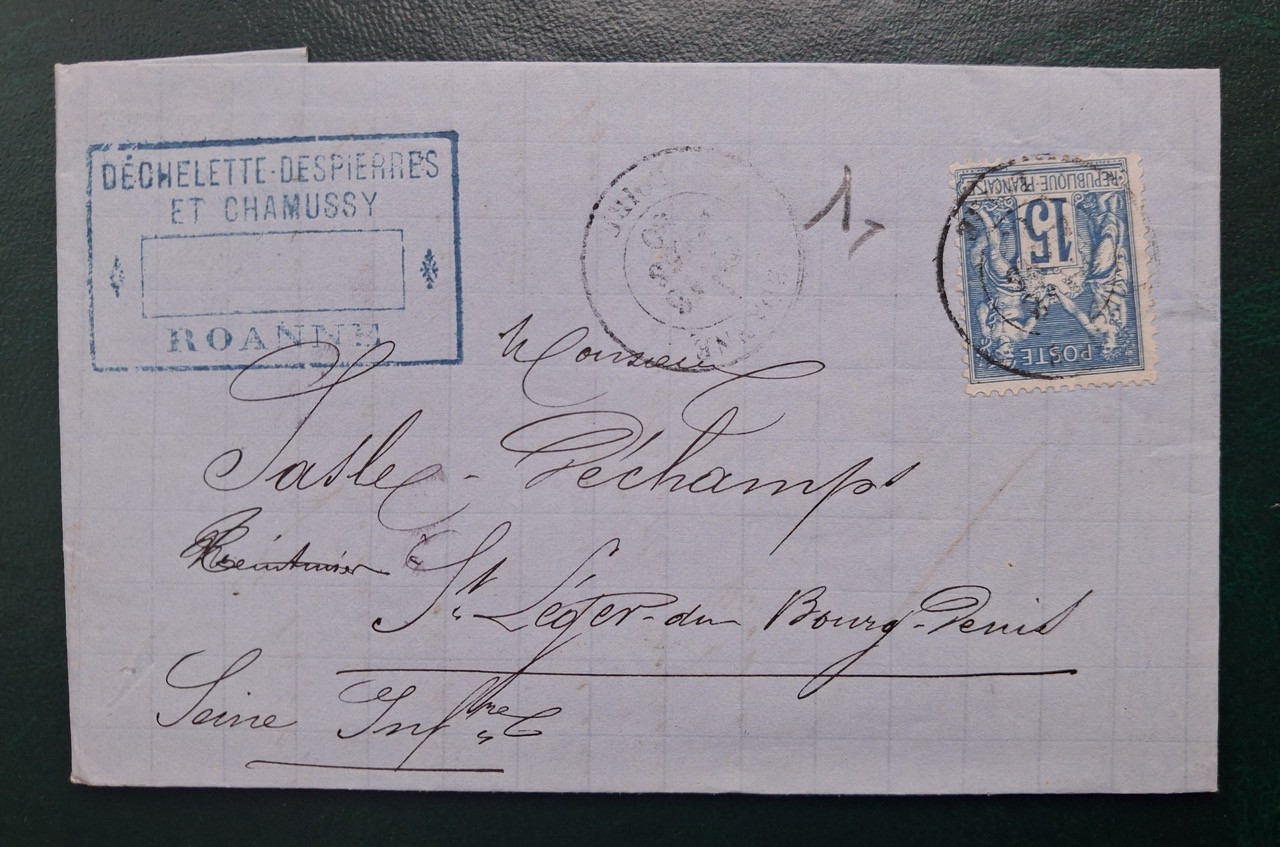 DÉCHELETTE-DESPIERRES
ET CHAMUSSY
ROANNE
RÉPUBLIQUE FRANÇAISE
15
POSTE
1
Monsieur
Déchamps
Teinturier
St. Léger-du Bourg-Denis
Seine Infre